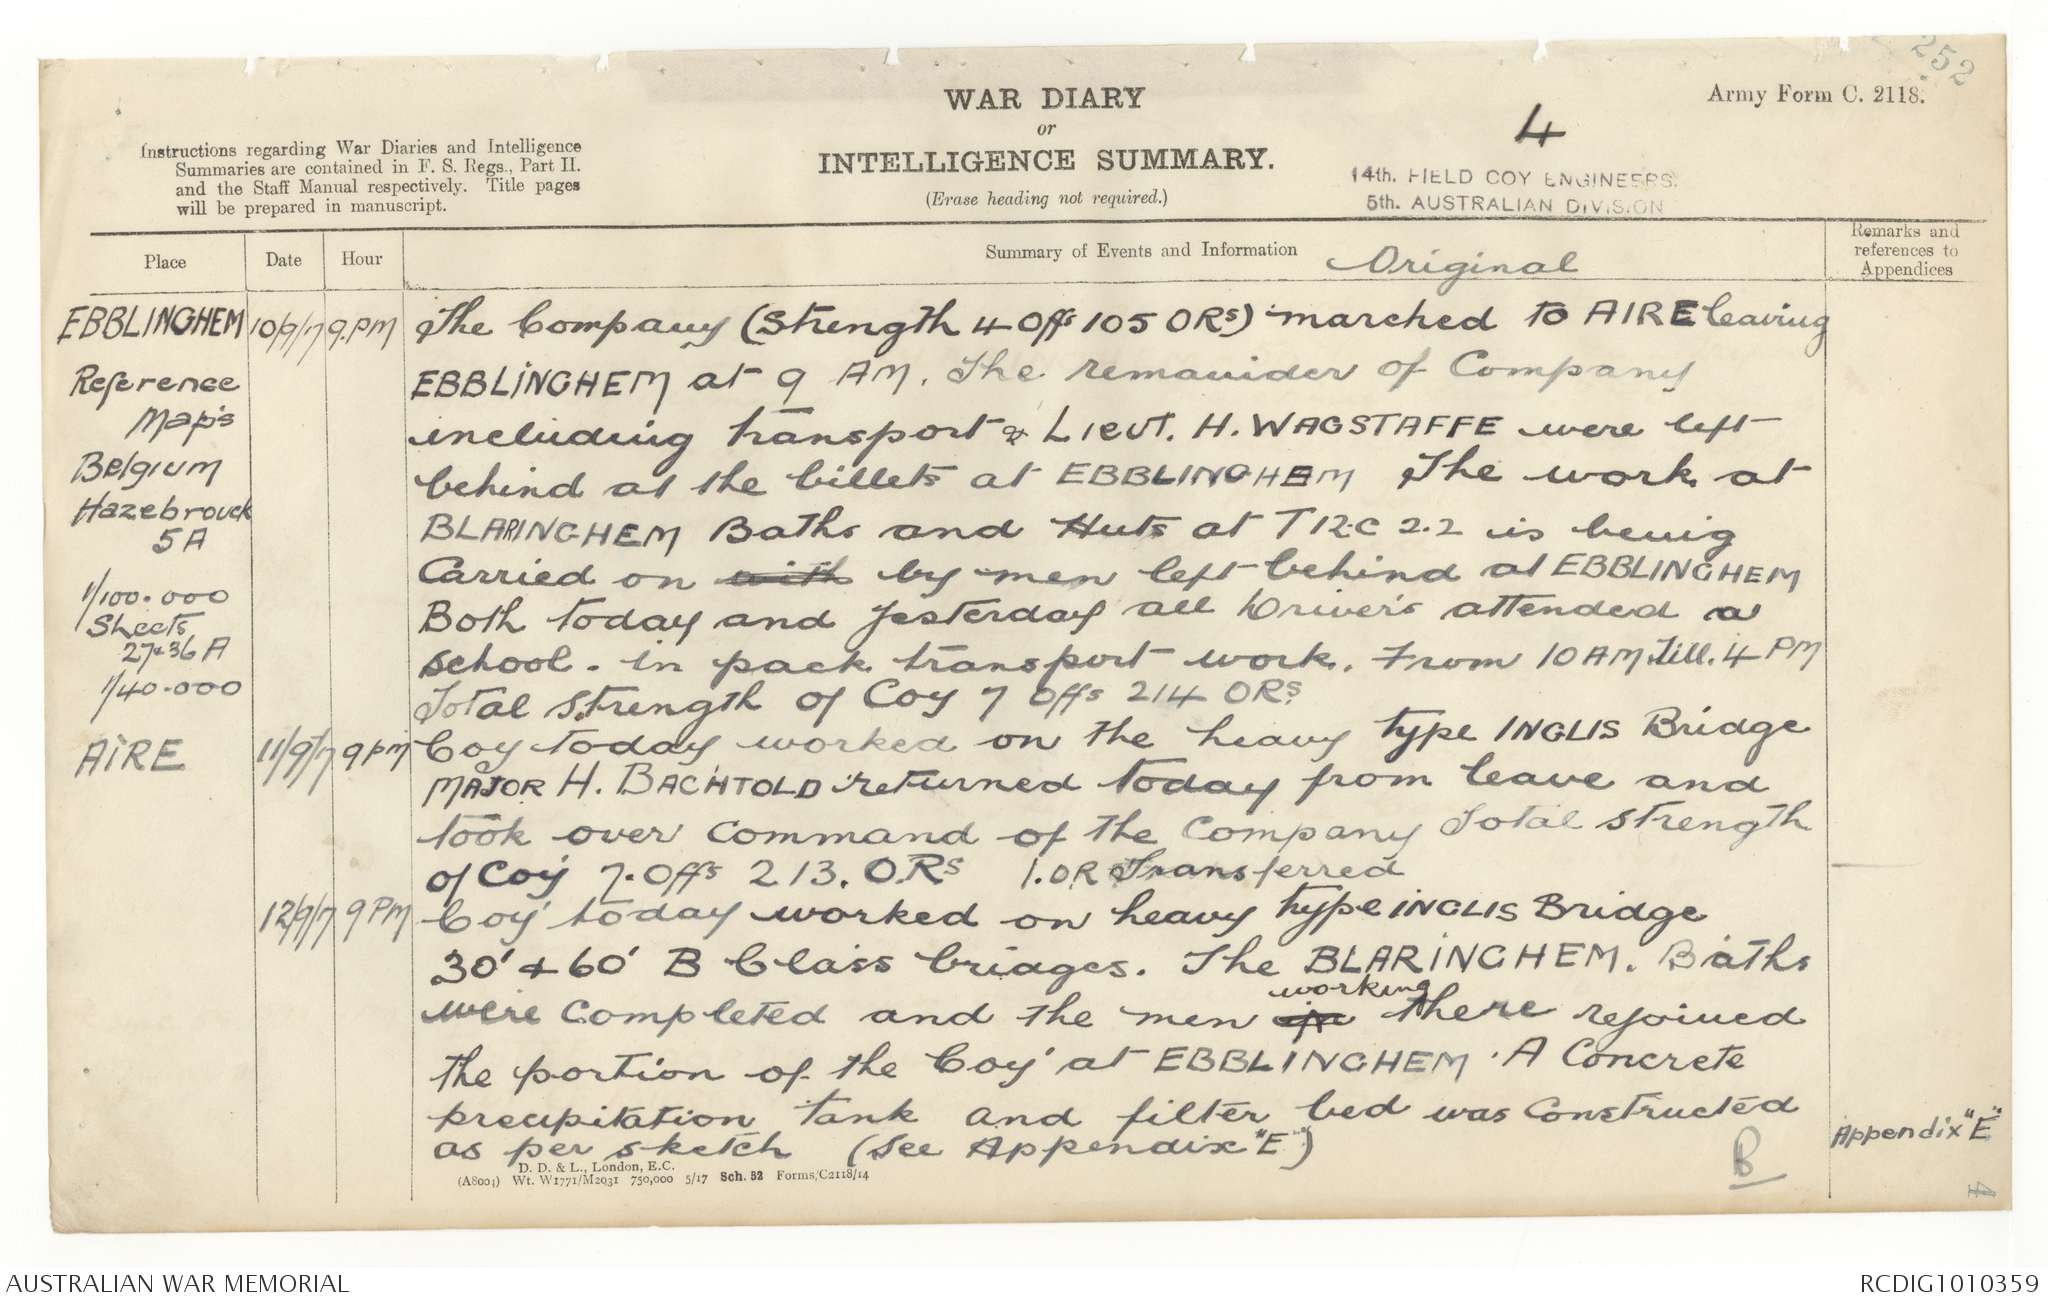 252
Army Form C. 2118.
WAR DIARY
or
INTELLIGENCE SUMMARY.
(Erase heading not required.)
4
14th. FIELD COY ENGINEERS.
5th. AUSTRALIAN DIVISION
Instructions regarding War Diaries and Intelligence
Summaries are contained in F. S. Regs., Part II.
and the Staff Manual respectively. Title pages
will be prepared in manuscript.
Place
Date
Hour
Summary of Events and Information
Original
Remarks and
references to
Appendices
EBBLINGHEM 10/9/17 9.PM The Company (Strength 4 Offs 105 ORs) marched to AIRE leaving
EBBLINGHEM at 9 AM. The remainder of Company
including transport & Lieut. H. WAGSTAFFE were left
behind at the billets at EBBLINGHEM The work at
BLARINGHEM Baths and Huts at T12.C 2.2 is being
Carried on with by men left behind at EBBLINGHEM
Both today and yesterday all Driver's attended a
school. in pack transport work. From 10 AM till. 4 PM
Total strength of Coy 7 Offs 214 ORs.
Reference
Map's
Belgium
Hazebrouck
5A
1/100.000
Sheets
27&36A
1/40.000
AIRE 11/9/17 9PM Coy today worked on the heavy type INGLIS Bridge
MAJOR H. BACHTOLD returned today from leave and
took over command of the Company Total strength
of Coy 7. Offs 213. O.Rs 1. OR Transferred
12/9/17 9 PM Coy' today worked on heavy type INGLIS Bridge
30' & 60' B Class bridges. The BLARINGHEM. Baths
working
were Completed and the men in there rejoined
the portion of the Coy' at EBBLINGHEM. A Concrete
precipitation tank and filter bed was Constructed
as per sketch (See Appendix "E")
Appendix "E"
B
4
D. D. & L., London, E.C.
(A8004) Wt. W1771/M2031 750,000 5/17 Sch. 52 Forms/C2118/14
AUSTRALIAN WAR MEMORIAL
RCDIG1010359